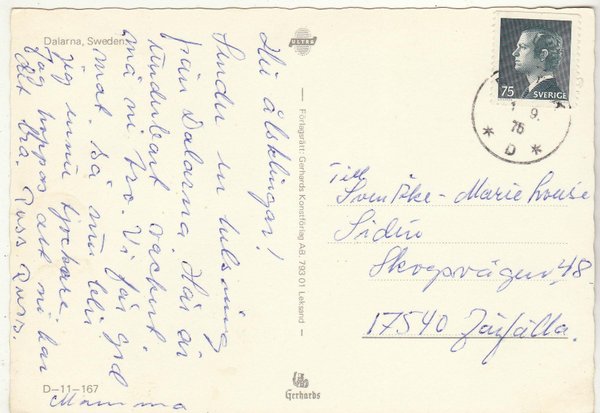 Dalarna, Sweden
ULTRA
Hej älsklingar!
Sänder en hälsning
från Dalarna. Här är
underbart vackert
må ni tro. Vi får god
mat. Så nu blir
jag ännu tjockare,
Jag hoppas att ni har
det bra. Puss Puss.
Mamma
D-11-167
Förlagsrätt: Gerhards Konstförlag AB, 793 01 Leksand
Gerhards
75 SVERIGE
1 9.
76
* D *
Till
Sven Åke - Marie Louise
Sidén
Skogsvägen 48
17540 Järfälla.